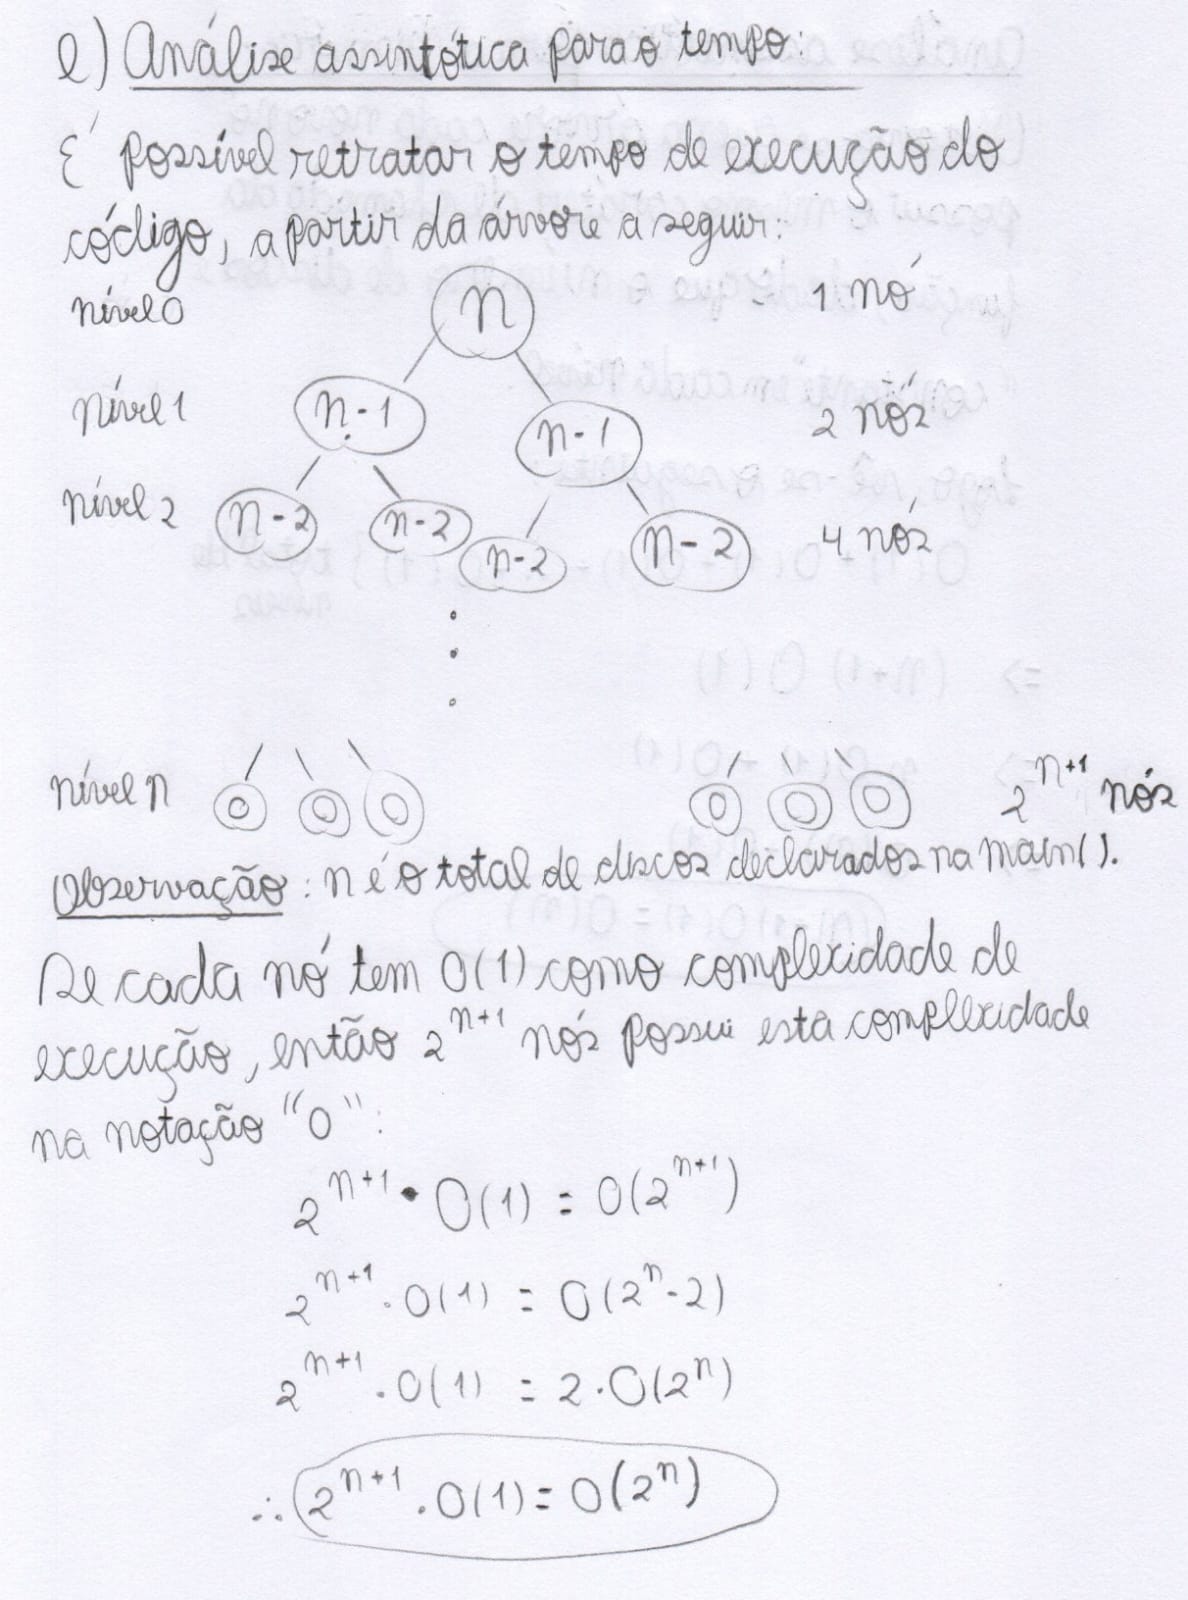 e) Análise assintótica para o tempo:
É possível retratar o tempo de execução do
código, a partir da árvore a seguir:
nível 0 n 1 nó
nível 1 n-1 n-1 2 nós
nível 2 n-2 n-2 n-2 n-2 4 nós
nível n 0 0 0 0 0 0 2^{n+1} nós
Observação: n é o total de discos declarados na main().
Se cada nó tem O(1) como complexidade de
execução, então 2^{n+1} nós possui esta complexidade
na notação "O":
2^{n+1} · O(1) = O(2^{n+1})
2^{n+1} · O(1) = O(2^n · 2)
2^{n+1} · O(1) = 2 · O(2^n)
∴ 2^{n+1} · O(1) = O(2^n)